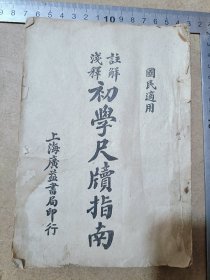 國民適用
註解
淺釋
初學尺牘指南
上海廣益書局印行